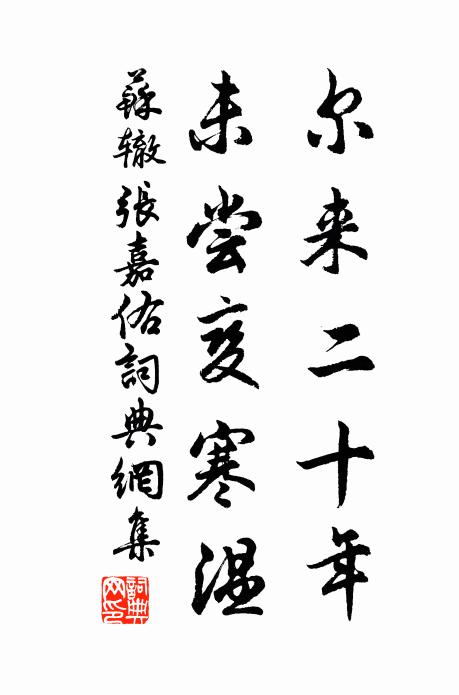 尔来二十年
未尝变寒温
蘇辙張嘉佑詞典網集
詞典网印